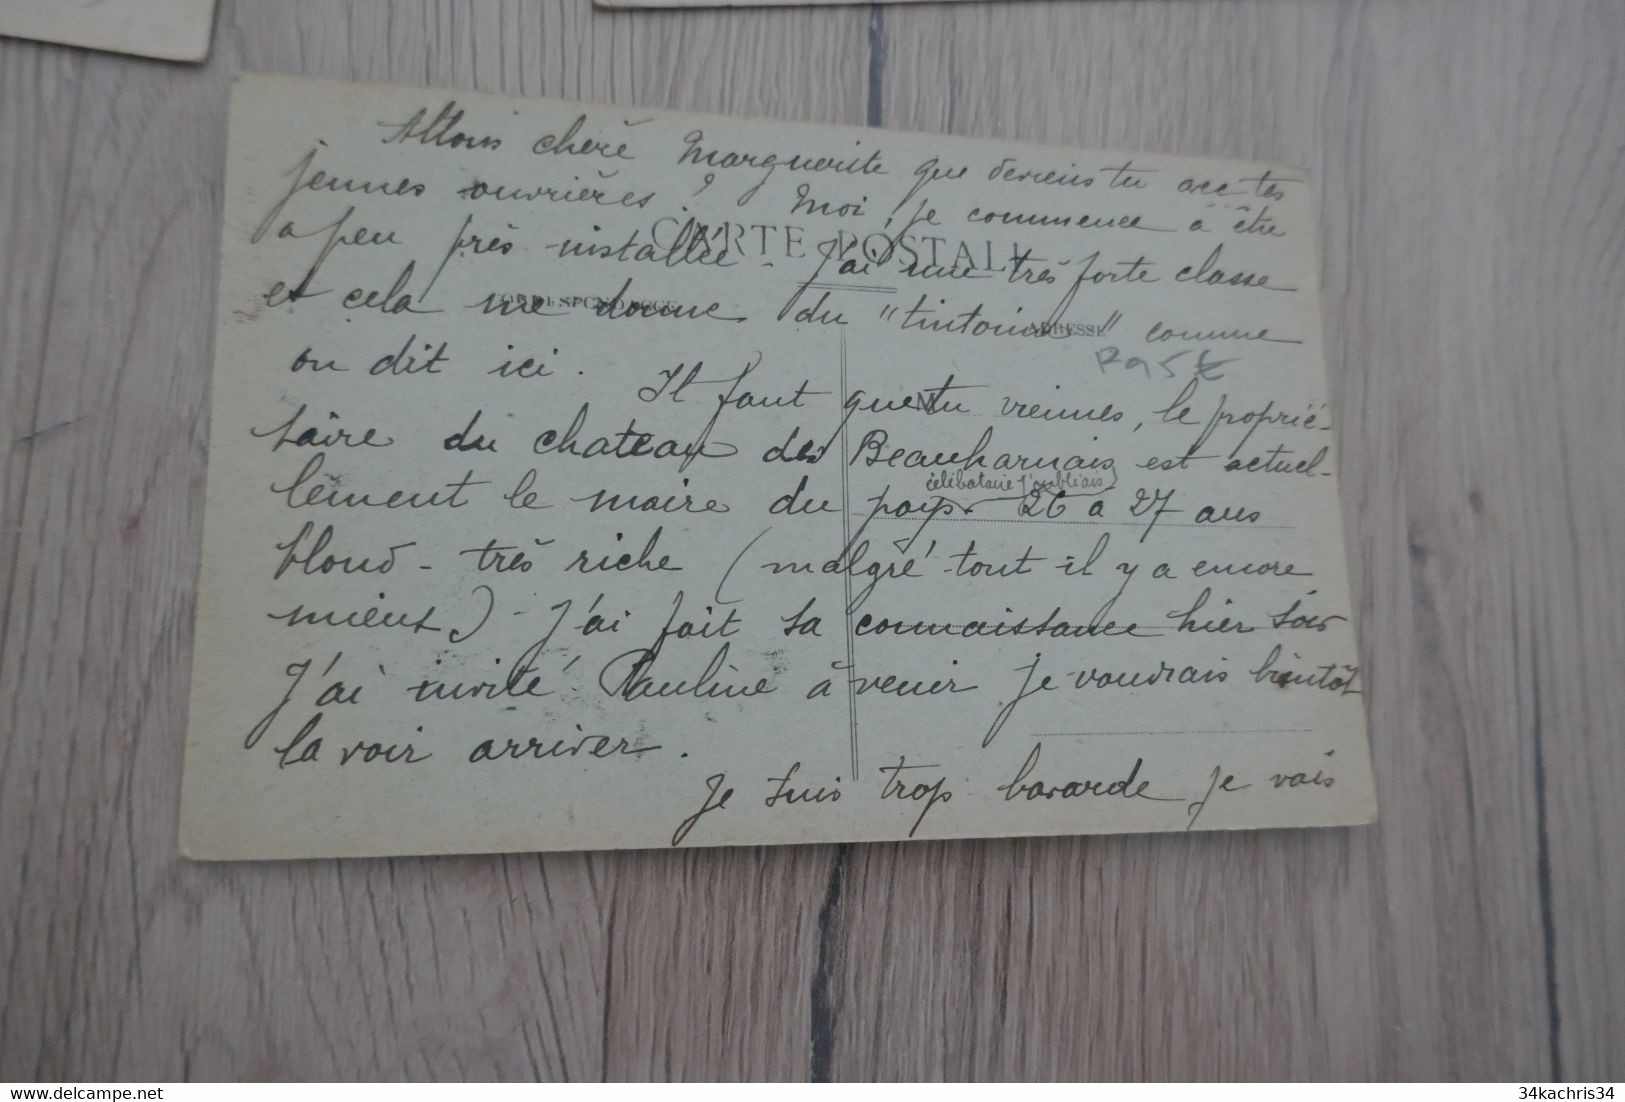 Allons chère Marguerite que deviens tu avec tes
jeunes ouvrières ? Moi, je commence à être
a peu près installée - J'ai une très forte classe
CARTE POSTALE
et cela me donne du "tintouin" comme
CORRESPONDANCE
ADRESSE
on dit ici.
R95€
Il faut que tu viennes, le proprié-
M
taire du chateau des Beauharnais est actuel-
célibataire j'oubliais
lement le maire du pays. 26 a 27 ans
blond - très riche (malgré tout il y a encore
mieux) - J'ai fait sa connaissance hier soir
J'ai invité Pauline à venir je voudrais bientôt
la voir arriver.
Je suis trop bavarde je vais
34kachris34